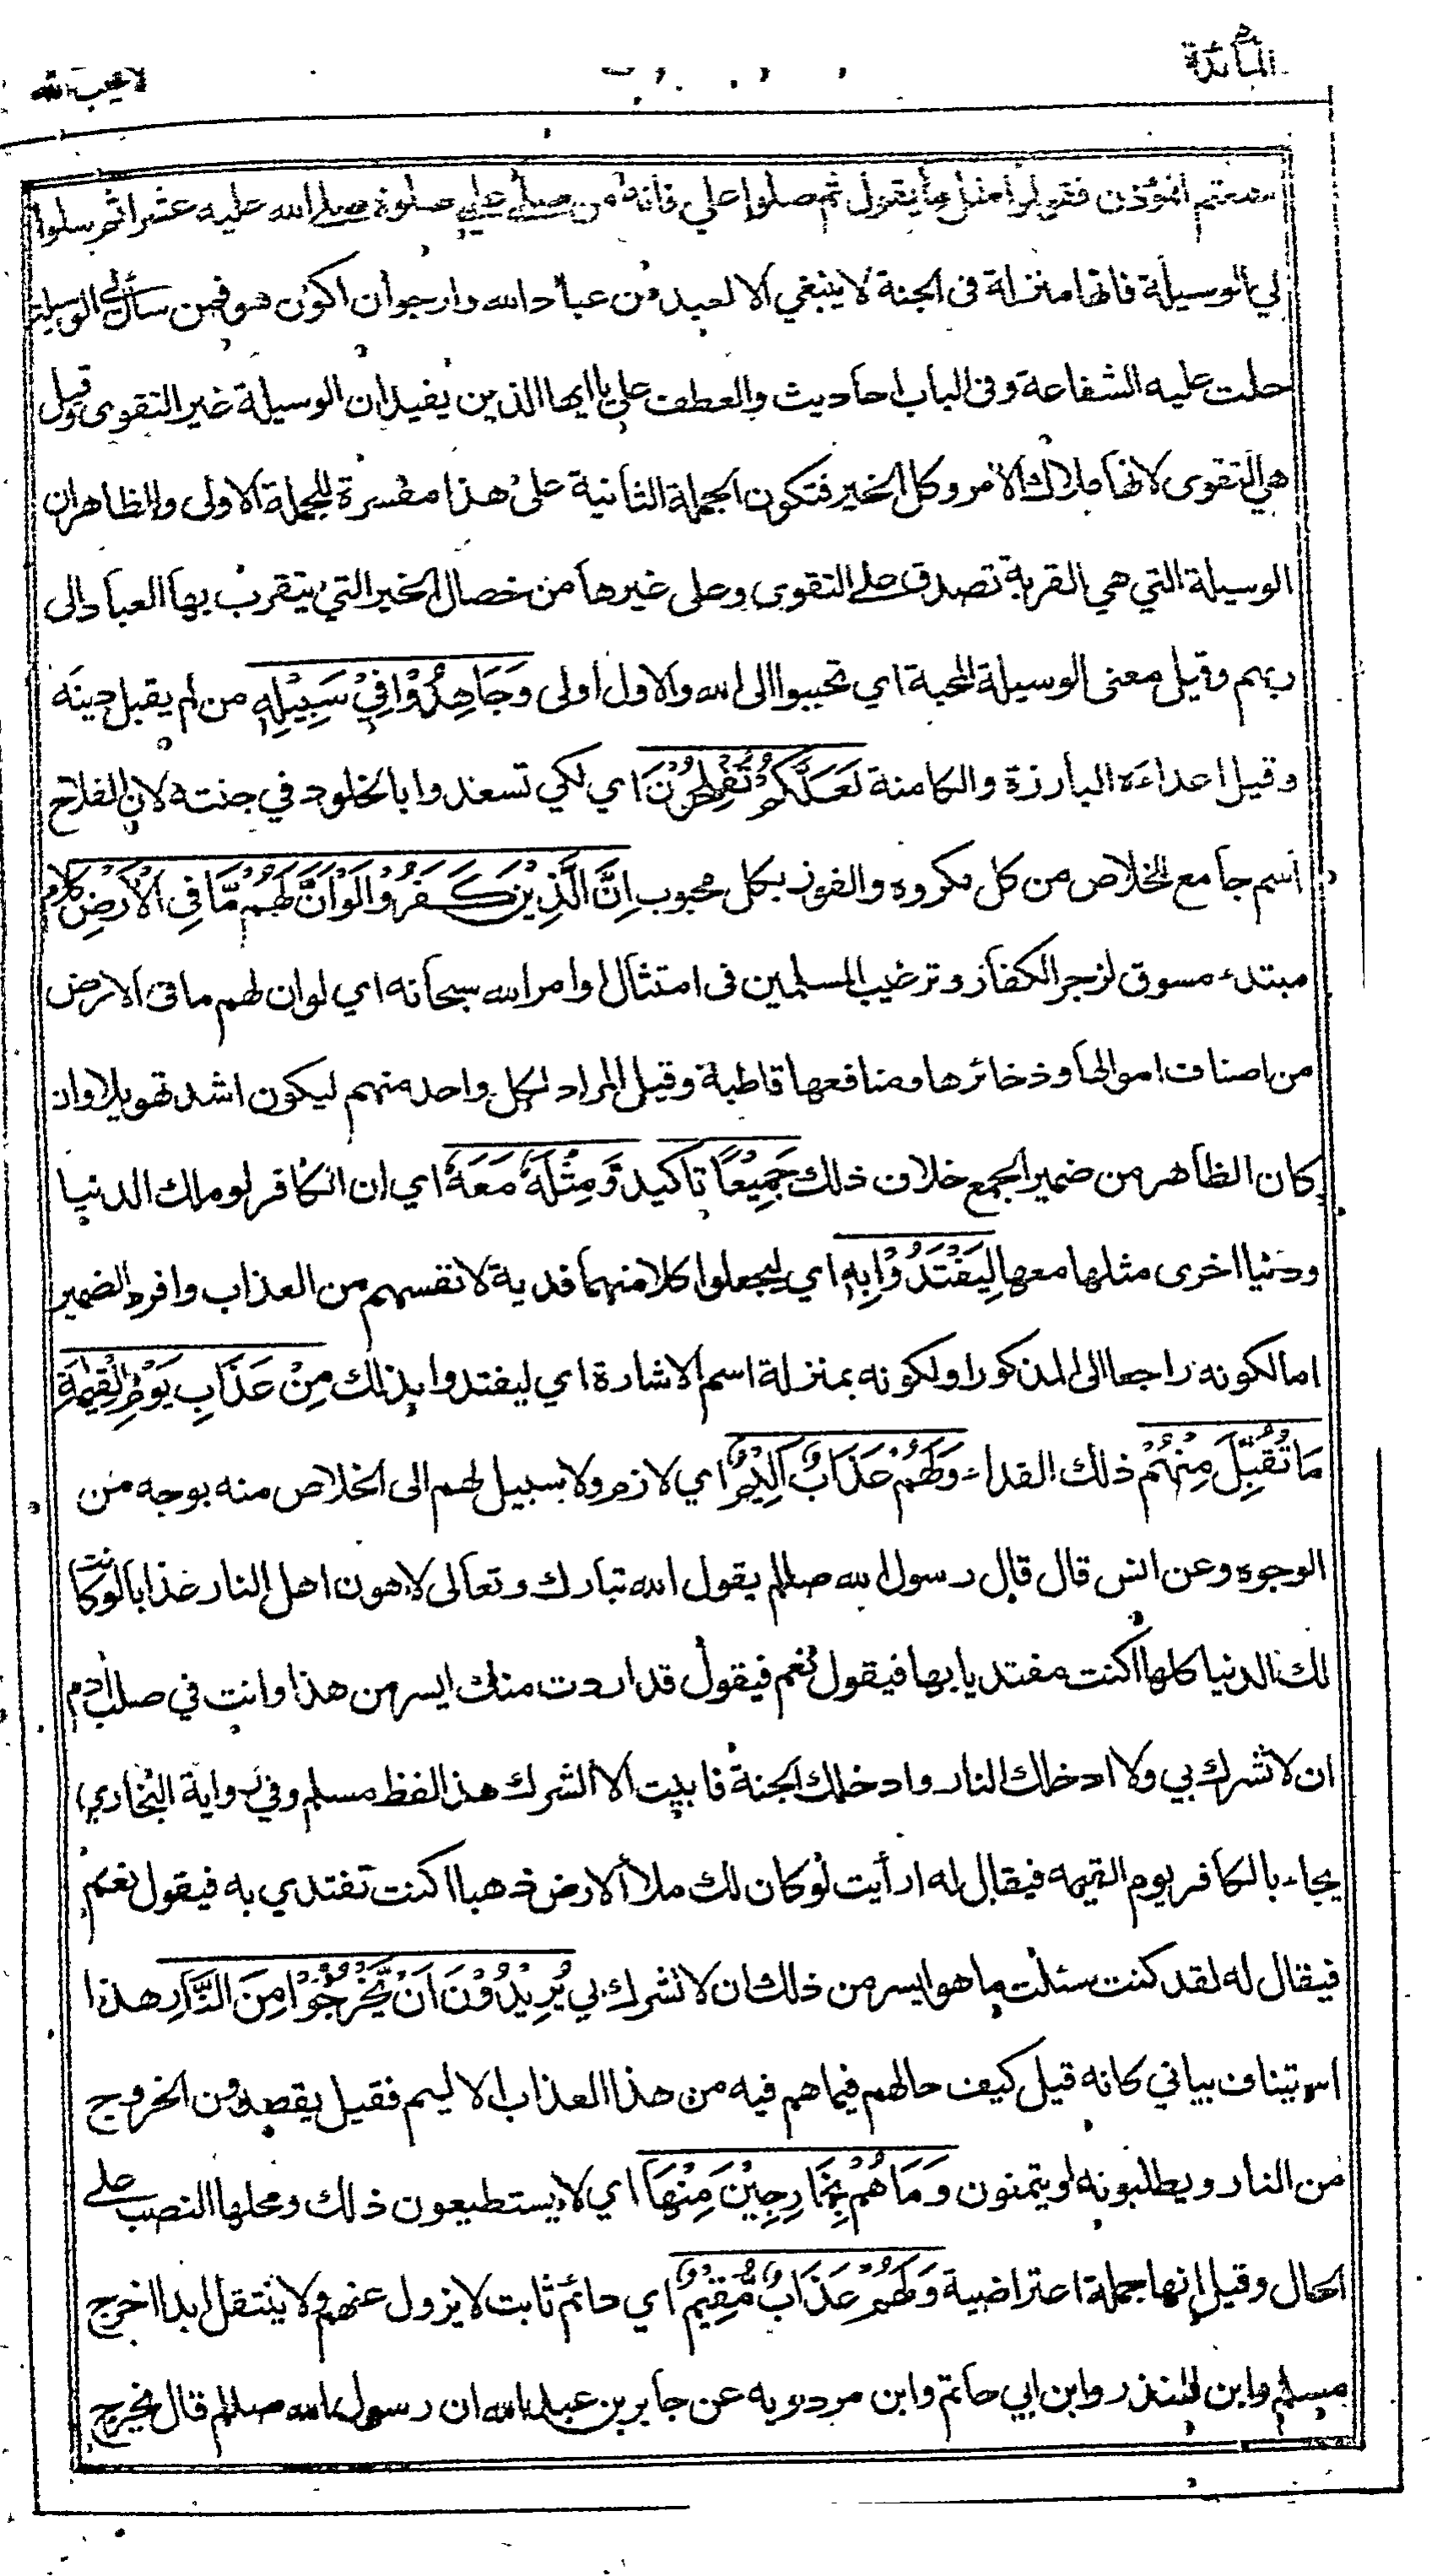 المائدة
لا يحب الله
سمعتم المؤذن فقولوا مثل ما يقول ثم صلوا علي فانه من صلى علي صلوة صلى الله عليه عشرا ثم سلوا
لي الوسيلة فانها منزلة في الجنة لا ينبغي الا لعبد من عباد الله وارجو أن اكون هو فمن سأل لي الوسيلة
حلت عليه الشفاعة وفى الباب احاديث والعطف على يا ايها الذين يفيد ان الوسيلة غير التقوى وقيل
هي التقوى لانها ملاك الأمر وكل الخير فتكون الجملة الثانية على هذا مفسرة للجملة الاولى والظاهر ان
الوسيلة التي هي القربة تصدق على التقوى وعلى غيرها من خصال الخير التي يتقرب بها العباد الى
ربهم وقيل معنى الوسيلة المحبة اي تحببوا الى الله والاول اولى وَجَاهِدُوْا فِيْ سَبِيْلِهٖ من لم يقبل دينه
وقيل اعداءه البارزة والكامنة لَعَلَّكُمْ تُفْلِحُوْنَ اي لكي تسعدوا بالخلود في جنته لان الفلاح
اسم جامع للخلاص من كل مكروه والفوز بكل محبوب اِنَّ الَّذِيْنَ كَفَرُوْا لَوْ اَنَّ لَهُمْ مَّا فِي الْاَرْضِ كلام
مبتدء مسوق لزجر الكفار وترغيب المسلمين فى امتثال اوامر الله سبحانه اي لو ان لهم ما فى الارض
من اصناف اموالها وذخائرها ومنافعها قاطبة وقيل المراد لكل واحد منهم ليكون اشد تهويلا وان
كان الظاهر من ضمير الجمع خلاف ذلك جَمِيْعًا تاكيد وَّمِثْلَهٗ مَعَهٗ اي ان الكافر لو ملك الدنيا
ودنيا اخرى مثلها معها لِيَفْتَدُوْا بِهٖ اي ليجعلوا كلا منهما فدية لانفسهم من العذاب وافرد الضمير
اما لكونه راجعا الى المذكور او لكونه بمنزلة اسم الاشارة اي ليفتدوا بذلك مِنْ عَذَابِ يَوْمِ الْقِيٰمَةِ
مَا تُقُبِّلَ مِنْهُمْ ذلك الفداء وَلَهُمْ عَذَابٌ اَلِيْمٌ اي لازم ولا سبيل لهم الى الخلاص منه بوجه من
الوجوه وعن انس قال قال رسول الله صللم يقول الله تبارك وتعالى لاهون اهل النار عذابا لو كانت
لك الدنيا كلها اكنت مفتديا بها فيقول نعم فيقول قد اردت منك ايسر من هذا وانت في صلب آدم
ان لا تشرك بي ولا ادخلك النار وادخلك الجنة فابيت الا الشرك هذا لفظ مسلم وفي رواية البخاري
يجاء بالكافر يوم القيمه فيقال له ارأيت لو كان لك ملأ الارض ذهبا اكنت تفتدي به فيقول نعم
فيقال له لقد كنت سئلت ما هو ايسر من ذلك ان لا تشرك بي يُرِيْدُوْنَ اَنْ يَّخْرُجُوْا مِنَ النَّارِ هذا
استيناف بياني كانه قيل كيف حالهم فيما هم فيه من هذا العذاب الاليم فقيل يقصدون الخروج
من النار ويطلبونه او يتمنون وَمَا هُمْ بِخٰرِجِيْنَ مِنْهَا اي لا يستطيعون ذلك ومحلها النصب على
الحال وقيل انها جملة اعتراضية وَلَهُمْ عَذَابٌ مُّقِيْمٌ اي دائم ثابت لا يزول عنهم ولا ينتقل ابدا اخرج
مسلم وابن المنذر وابن ابي حاتم وابن مردويه عن جابر بن عبد الله ان رسول الله صللم قال يخرج